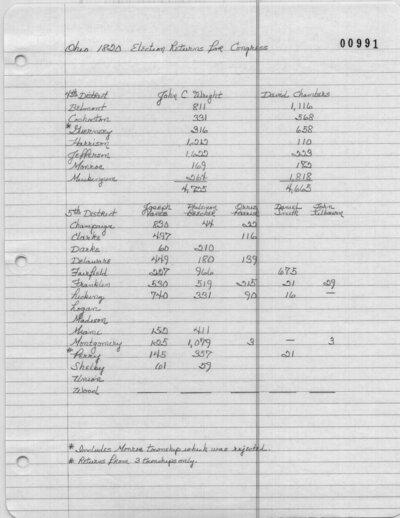 Ohio 1820 Election Returns for Congress 00991
4th District John C. Wright David Chambers
Belmont 811 1,116
Coshocton 331 568
* Guernsey 316 658
Harrison 1,212 110
Jefferson 1,622 223
Monroe 169
Muskingum 264 1,818
4,725 4,665
5th District Joseph Vance Philemon Beecher Orris Parrish Daniel Smith John Kilbourn
Champaign 830 44 22
Clarke 497 116
Darke 60 210
Delaware 449 180 139
Fairfield 227 966 675
Franklin 530 519 215 21 29
Licking 740 331 90 16 —
Logan
Madison
Miami 152 411
Montgomery 125 1,079 3 — 3
* Perry 145 357 21
Shelby 61 59
Union
Wood
* Includes Monroe township which was rejected.
* Returns from 3 townships only.